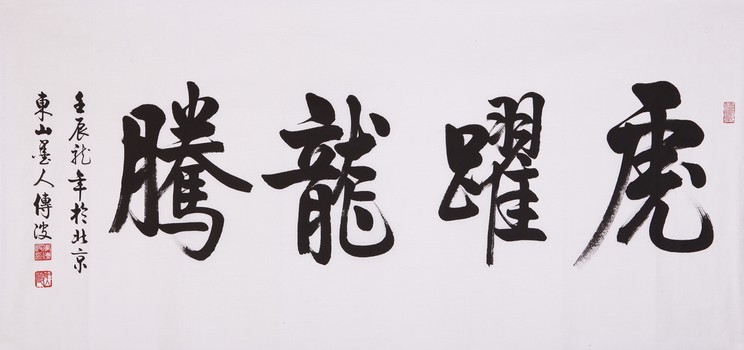 虎躍龍騰
壬辰龙年於北京
東山墨人傳波